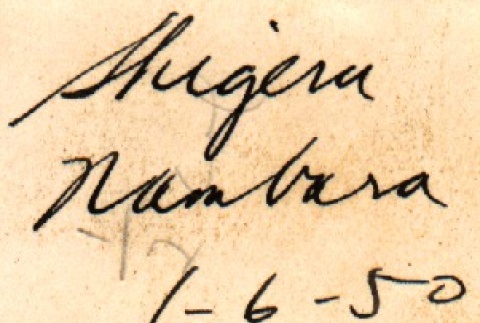 Shigeru
Nambara
1-6-50